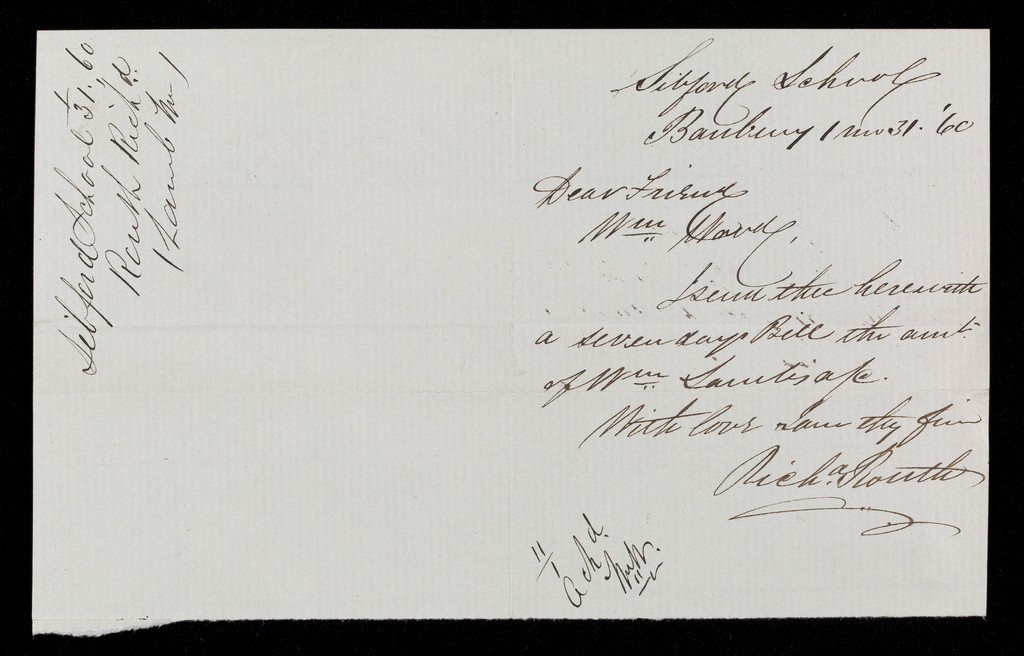 Sibford School
Banbury 1 mo 31. '60
Dear Friend
Wm Wood,
I send thee herewith
a seven days Bill the amt.
of Wm Lamb's a/c.
With love I am thy frie
Richd. Routh
11/1
Ackd.
WW.
Sibford School 1/31. 60
Routh Richd
1 Lamb Wm 1